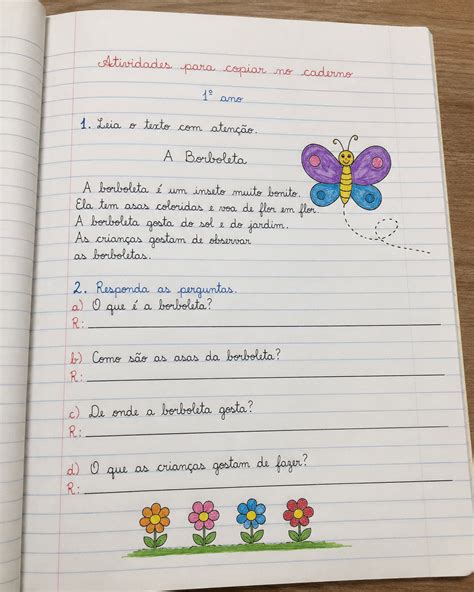 Atividades para copiar no caderno
1º ano
1. Leia o texto com atenção.
A Borboleta
A borboleta é um inseto muito bonito.
Ela tem asas coloridas e voa de flor em flor.
A borboleta gosta do sol e do jardim.
As crianças gostam de observar
as borboletas.
2. Responda as perguntas.
a) O que é a borboleta?
R:
b) Como são as asas da borboleta?
R:
c) De onde a borboleta gosta?
R:
d) O que as crianças gostam de fazer?
R: